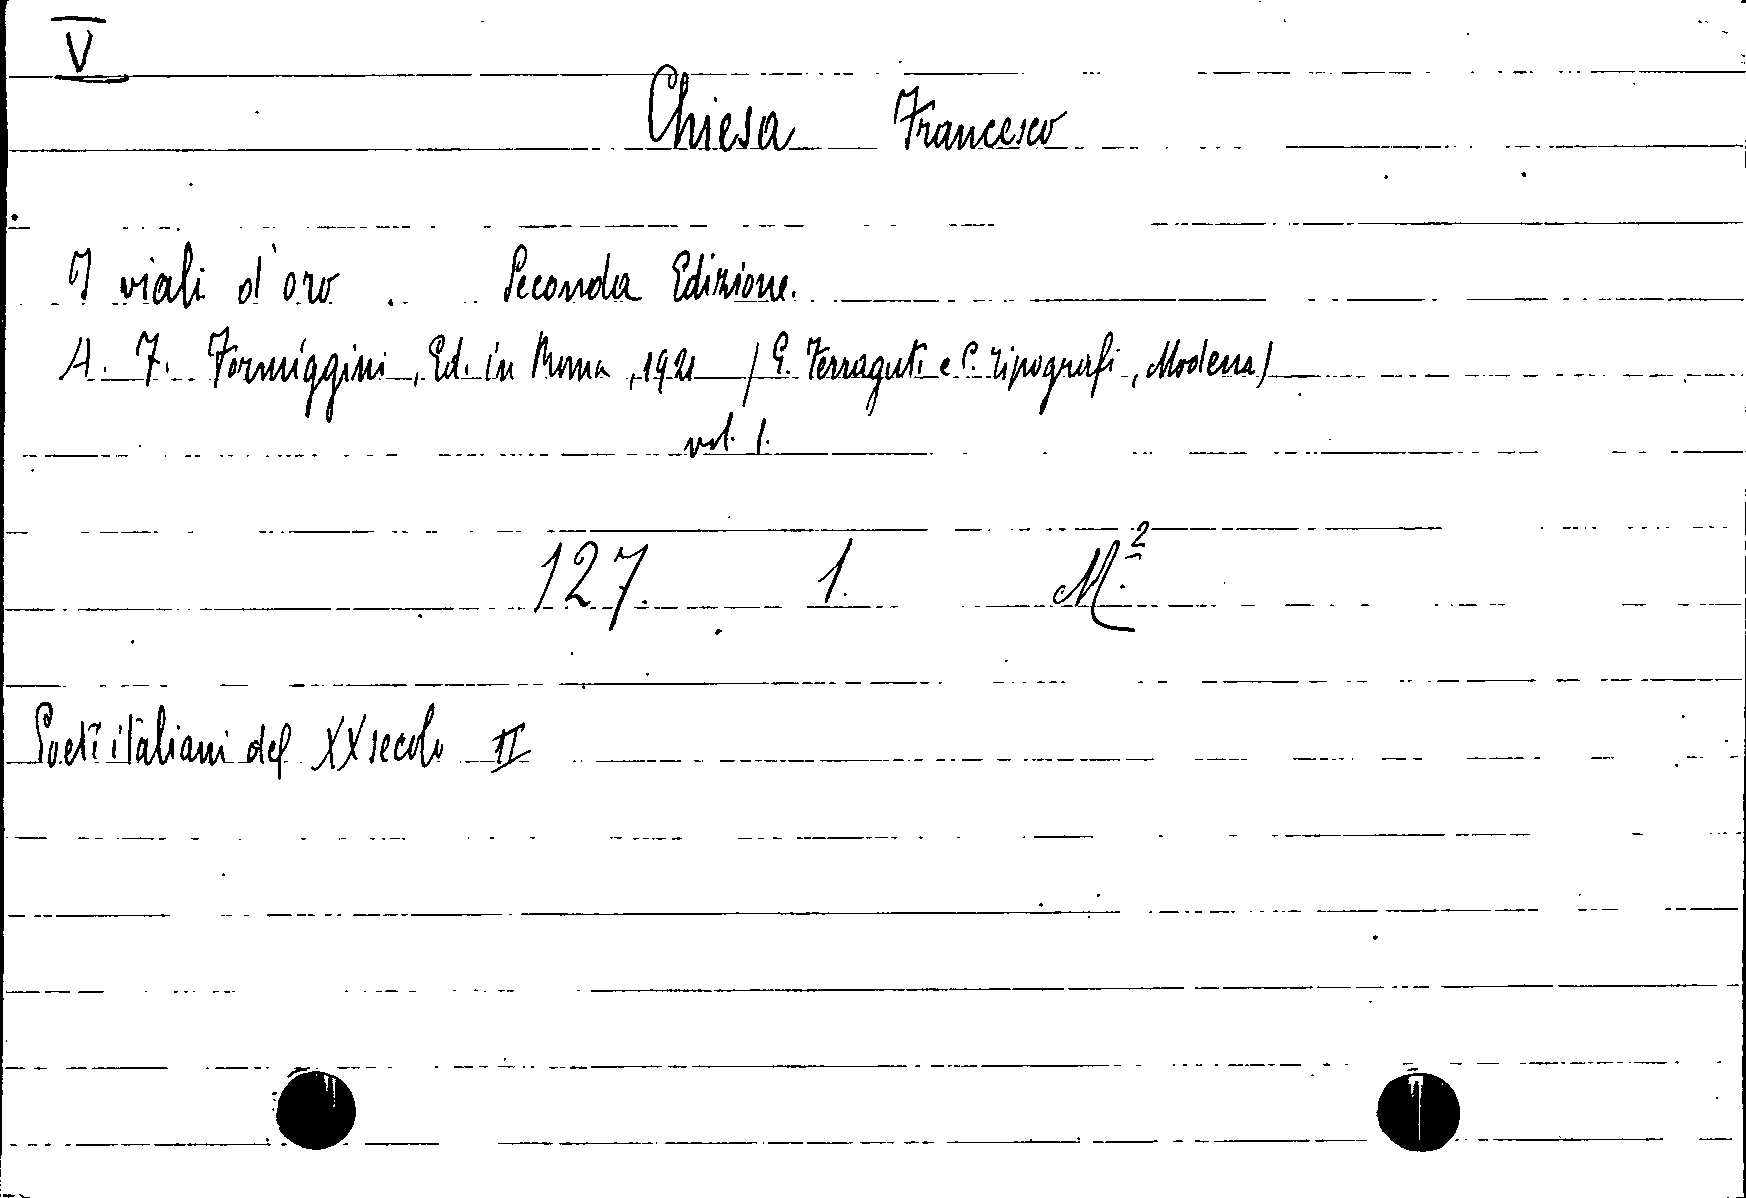 V
Chiesa Francesco
I viali d'oro . Seconda Edizione.
A. F. Formiggini, Ed. in Roma, 1921 / G. Ferraguti e C. tipografi, Modena /
vol. 1.
127. 1. M.2
Poeti italiani del XX secolo II